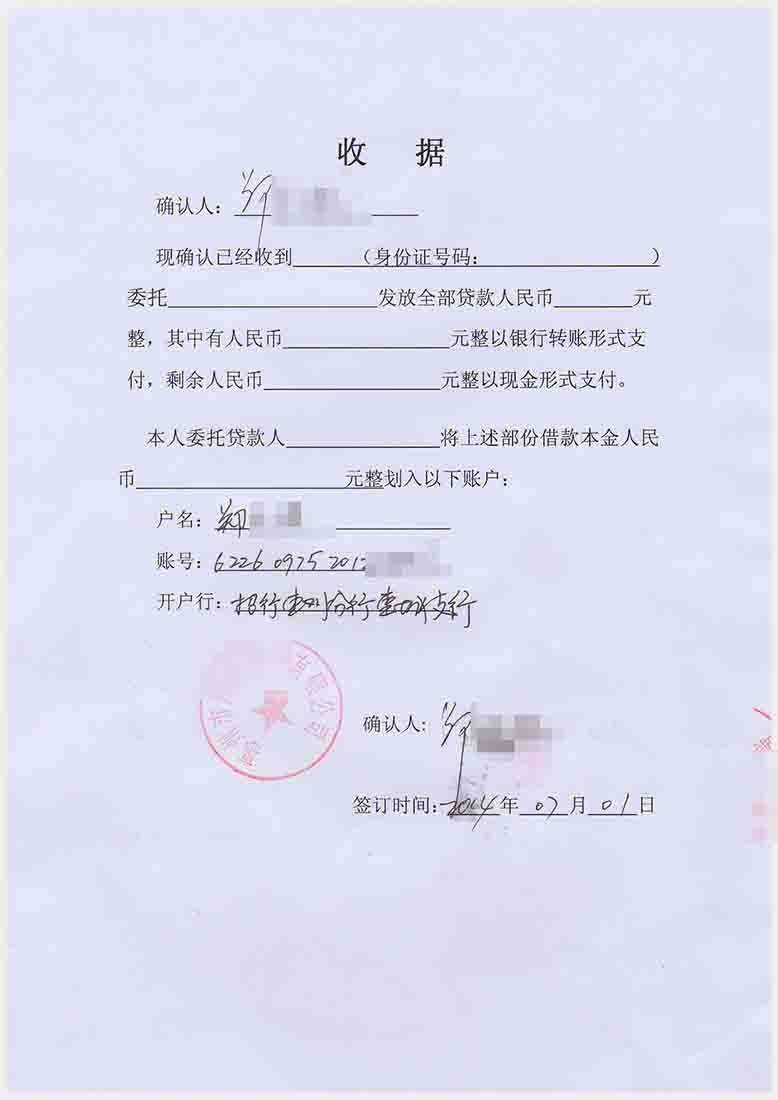 收 据
确认人：
现确认已经收到______（身份证号码：________________）
委托____________________发放全部贷款人民币_______元
整，其中有人民币________________元整以银行转账形式支
付，剩余人民币_________________元整以现金形式支付。
本人委托贷款人______________将上述部份借款本金人民
币____________________元整划入以下账户：
户名：郑
账号：6226 0975 201
开户行：招行惠州分行惠城支行
惠州市 有限公司
确认人：
签订时间：2014年07月01日